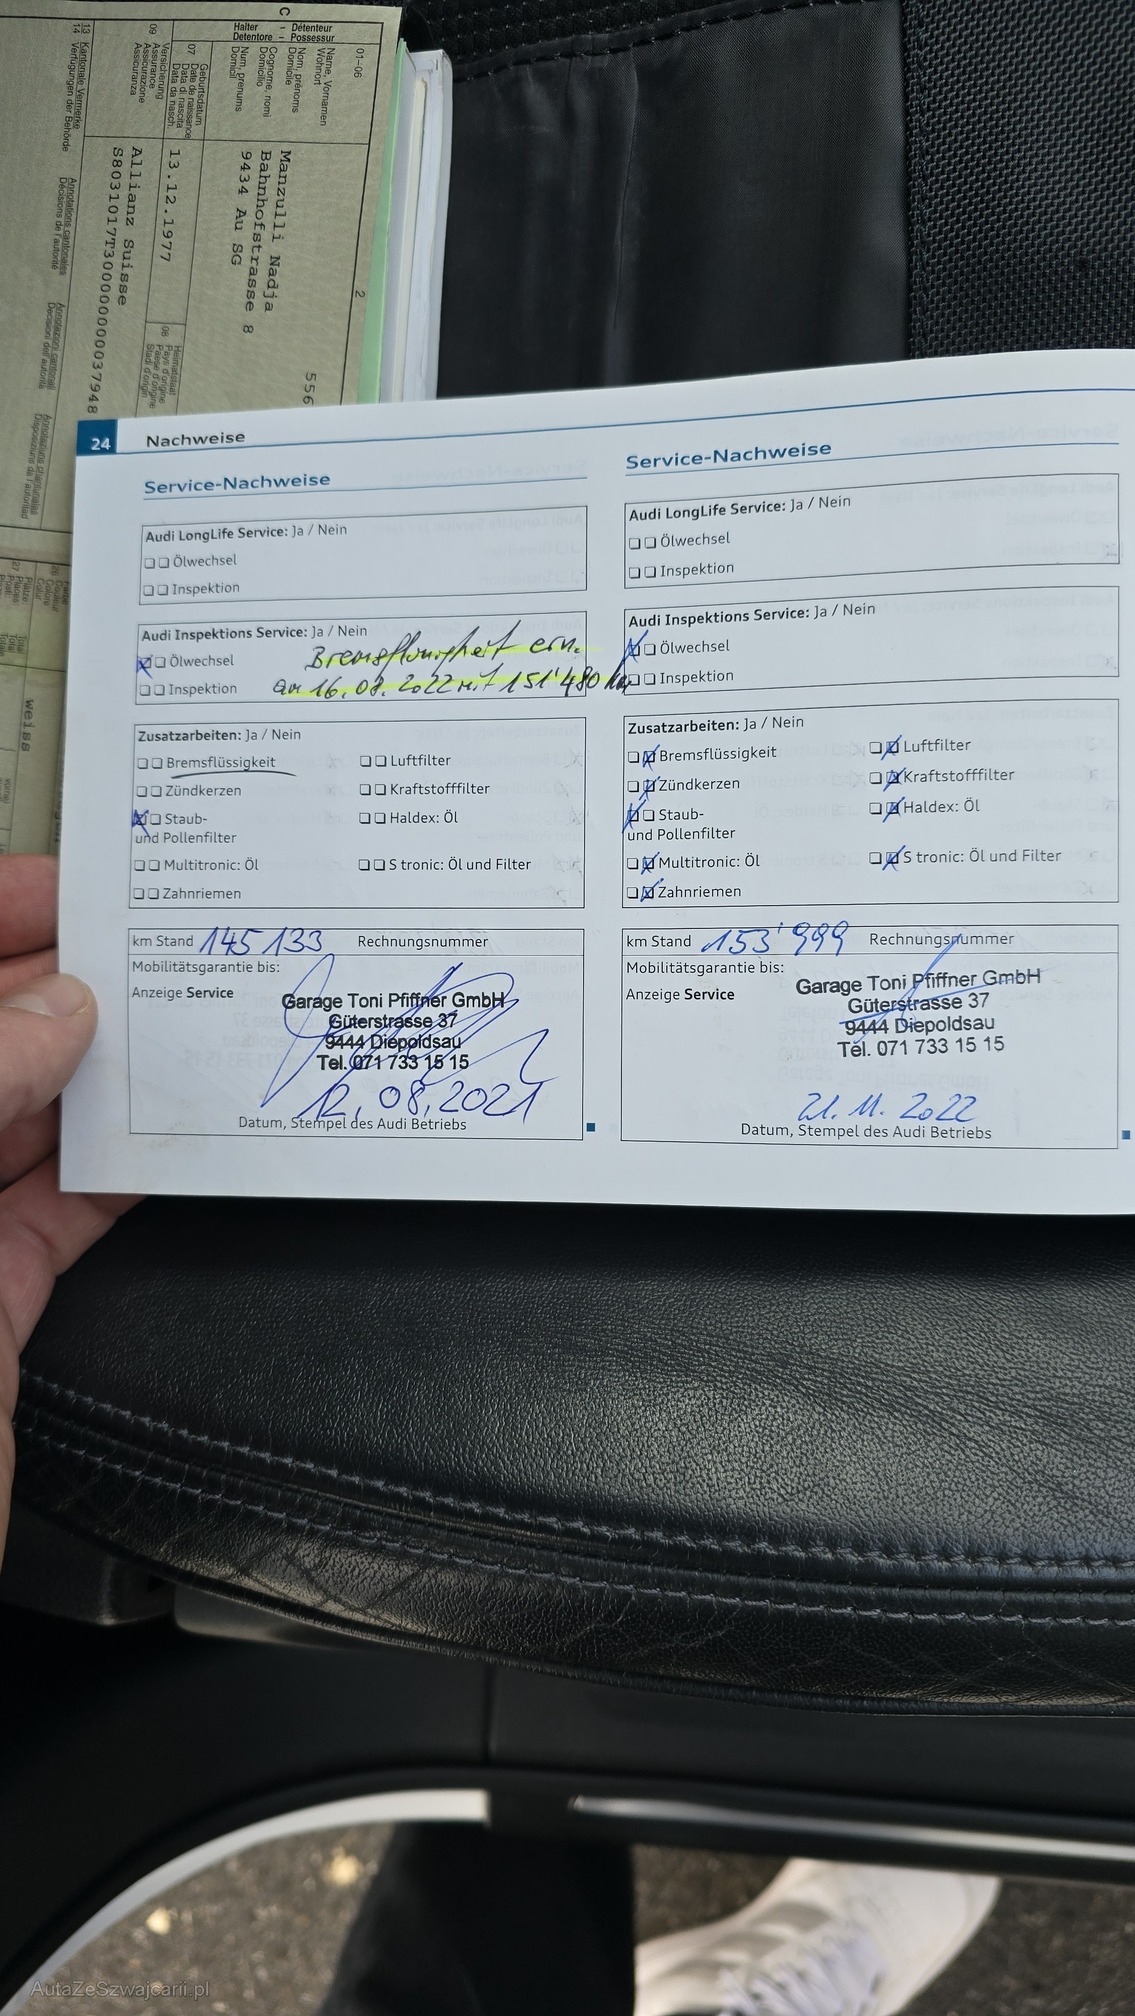 C
Halter – Détenteur
Detentore – Possessur
01-06
Name, Vornamen
Wohnort
Nom, prénoms
Domicile
Cognome, nomi
Domicilio
Num, prenums
Domicil
Manzulli Nadja
Bahnhofstrasse 8
9434 Au SG
2
556
07
Geburtsdatum
Date de naissance
Data di nascita
Data da nasch.
13.12.1977
08
Heimatstaat
Pays d'origine
Paese d'origine
Stadi d'origin
09
Versicherung
Assurance
Assicurazione
Assicuranza
Allianz Suisse
S8031017T3000000000037948
13 Kantonale Vermerke
14 Verfügungen der Behörde
Annotations cantonales
Décisions de l'autorité
Annotazioni cantonali
Decisioni dell'autorità
weiss
24 Nachweise
Service-Nachweise
Audi LongLife Service: Ja / Nein
Ölwechsel
Inspektion
Audi Inspektions Service: Ja / Nein
Ölwechsel
Bremsflüssigkeit ern.
Inspektion
am 16.08.2022 mit 151'480 km
Zusatzarbeiten: Ja / Nein
Bremsflüssigkeit Luftfilter
Zündkerzen Kraftstofffilter
Staub- Haldex: Öl
und Pollenfilter
Multitronic: Öl S tronic: Öl und Filter
Zahnriemen
km Stand 145133 Rechnungsnummer
Mobilitätsgarantie bis:
Anzeige Service
Garage Toni Pfiffner GmbH
Güterstrasse 37
9444 Diepoldsau
Tel. 071 733 15 15
12.08.2021
Datum, Stempel des Audi Betriebs
Service-Nachweise
Audi LongLife Service: Ja / Nein
Ölwechsel
Inspektion
Audi Inspektions Service: Ja / Nein
Ölwechsel
Inspektion
Zusatzarbeiten: Ja / Nein
Bremsflüssigkeit Luftfilter
Zündkerzen Kraftstofffilter
Staub- Haldex: Öl
und Pollenfilter
Multitronic: Öl S tronic: Öl und Filter
Zahnriemen
km Stand 153'999 Rechnungsnummer
Mobilitätsgarantie bis:
Anzeige Service
Garage Toni Pfiffner GmbH
Güterstrasse 37
9444 Diepoldsau
Tel. 071 733 15 15
21.11.2022
Datum, Stempel des Audi Betriebs
AutaZeSzwajcarii.pl